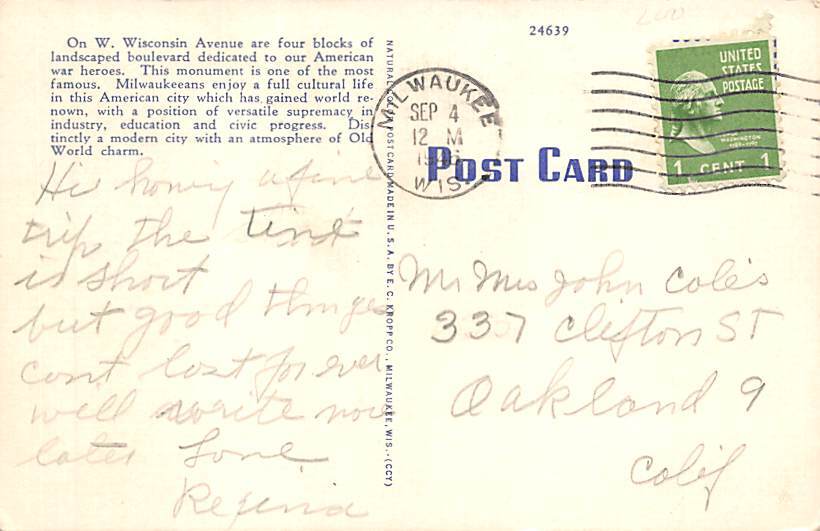 24639
On W. Wisconsin Avenue are four blocks of
landscaped boulevard dedicated to our American
war heroes. This monument is one of the most
famous. Milwaukeeans enjoy a full cultural life
in this American city which has gained world re-
nown, with a position of versatile supremacy in
industry, education and civic progress. Dis
tinctly a modern city with an atmosphere of Old
World charm.
NATURAL COLOR POST CARD MADE IN U. S. A. BY E. C. KROPP CO., MILWAUKEE, WIS.-(CCY)
MILWAUKEE
SEP 4
12 M
1946
WIS.
UNITED
STATES
POSTAGE
WASHINGTON
1 CENT 1
POST CARD
Hi a fine
trip the time
is short
but good things
cant last for ever
well write
later Love
Regina
Mr Mrs John Coles
337 Clifton ST
Oakland 9
Calif